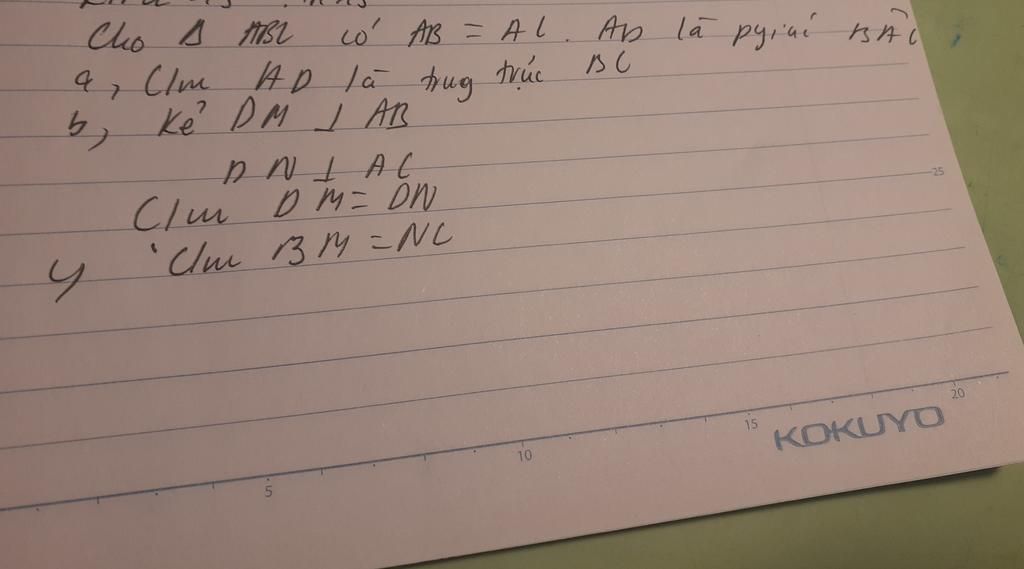 Cho Δ ABC có AB = AC. AD là pgiác BAC
a, C/m AD là trug trực BC
b, Kẻ DM ⊥ AB
DN ⊥ AC
C/m DM = DN
C/m BM = NC
5 10 15 20
25
KOKUYO